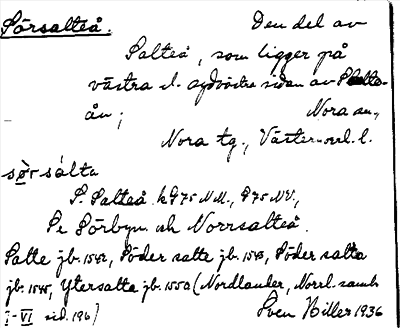 Sörsalteå. Den del av
Salteå, som ligger på
västra el. sydvästra sidan av Salte-
ån; Nora sn,
Nora tg., Väster-norrl. l.
sør sálta
S. Salteå k 975 N.M., 975 N.V.,
Se Sörbyn och Norrsalteå.
Salte jb. 1542, Söder salte jb. 1543, Söder salta
jb. 1545, Ytersalta jb. 1550 (Nordlander, Norrl. saml.
I-VI sid. 196) Sven Hiller 1936